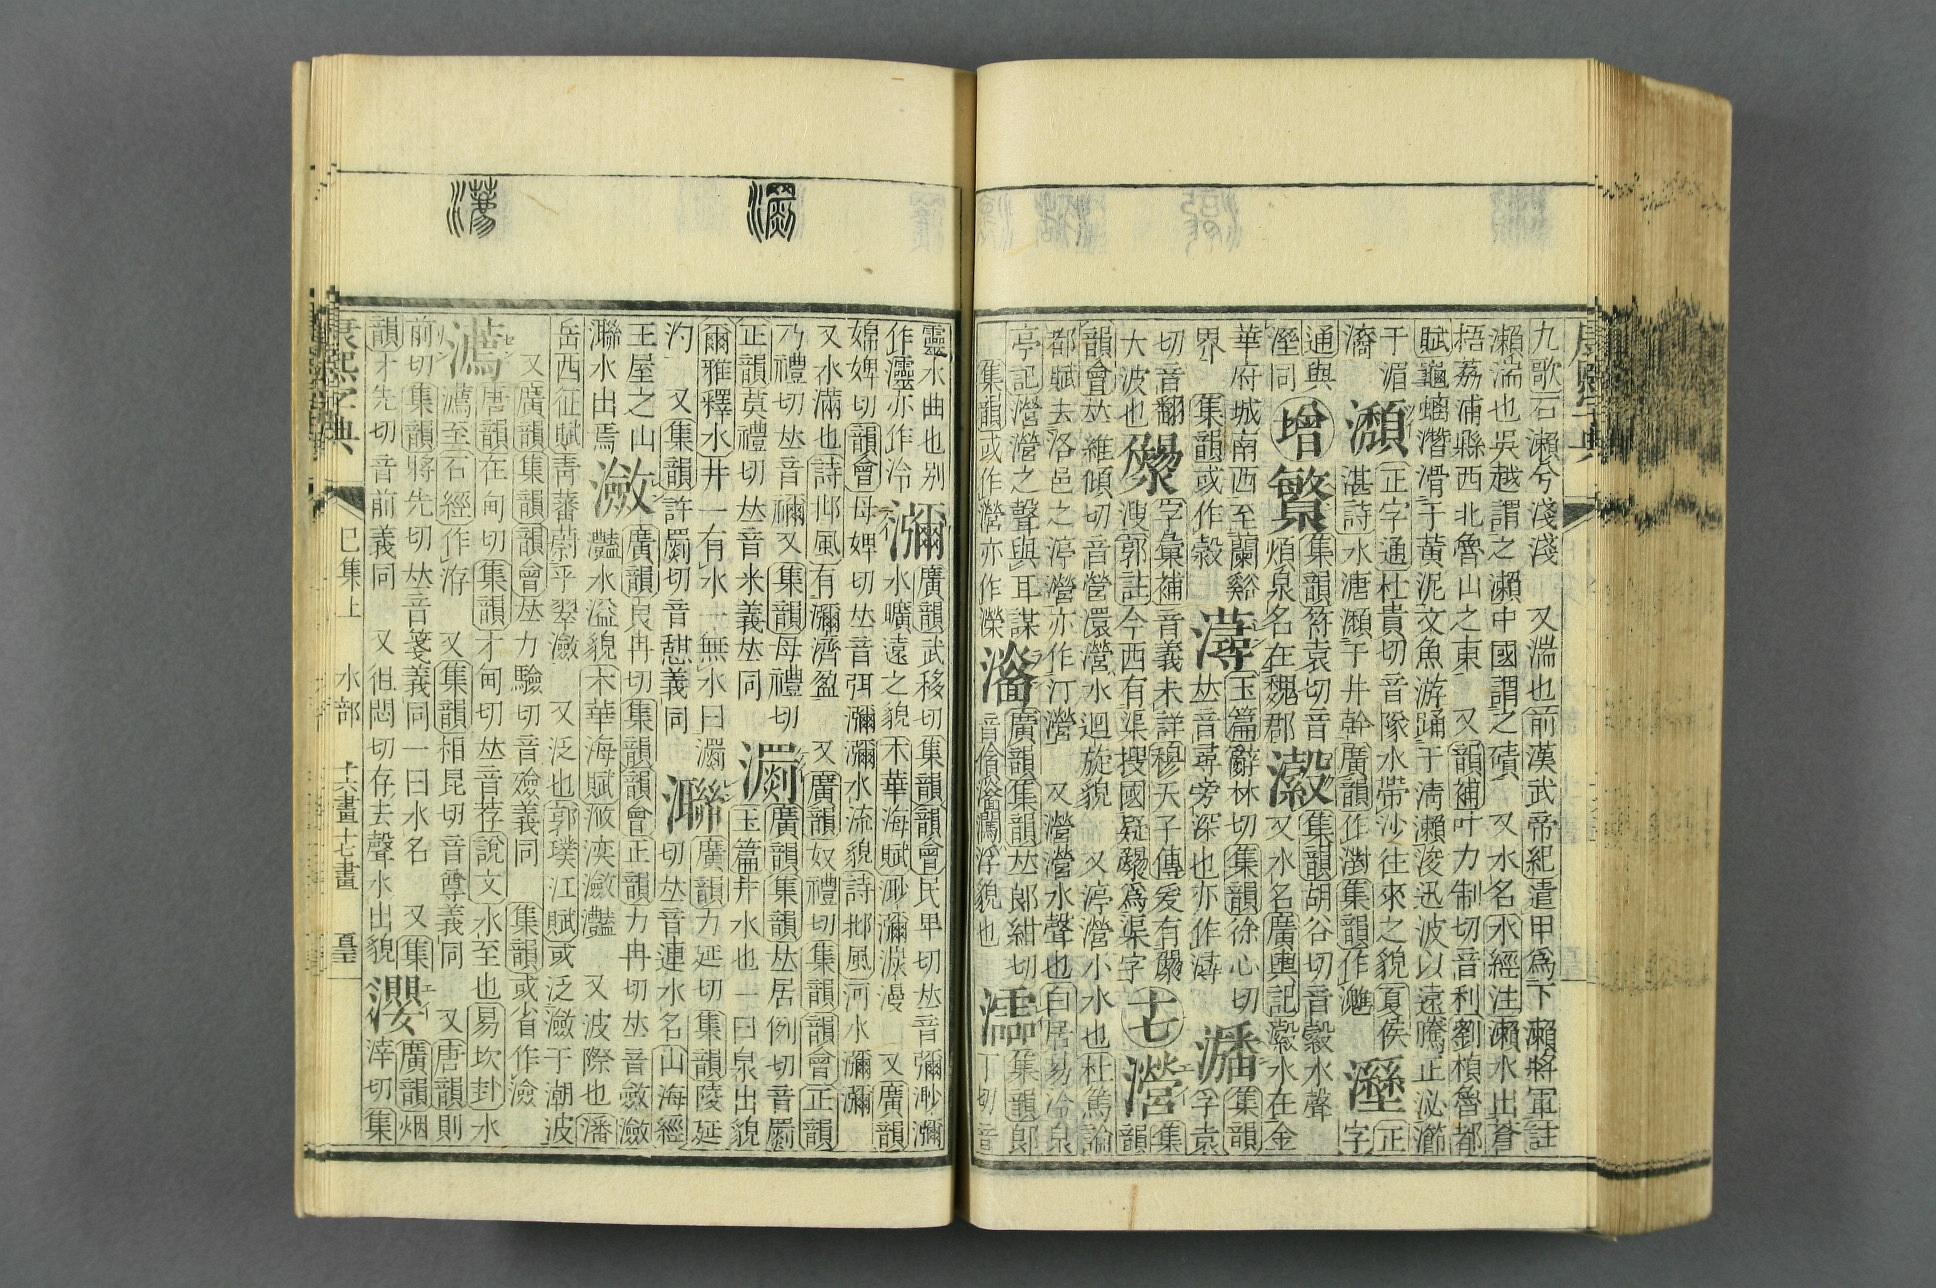 九歌石瀨兮淺淺 又湍也前漢武帝紀遣甲爲下瀨將軍註
瀨湍也吳越謂之瀨中國謂之磧 又水名水經注瀨水出蒼
梧荔浦縣西北魯山之東 又韻補叶力制切音利劉楨魯都
賦龜螭潛滑于黃泥文魚游踊于淸瀨浚迅波以遠騰正泌瀄
于湄
瀩
正字通杜貴切音隊水帶沙往來之貌夏侯
湛詩水塘瀩于井幹廣韻作濧集韻作
瀣
正
字
通與
溼同
增
繁
集韻符袁切音
煩泉名在魏郡
瀔
集韻胡谷切音縠水聲
又水名廣輿記瀔水在金
華府城南西至蘭谿
界 集韻或作榖
潯
玉篇辭林切集韻徐心切
𠀤音尋旁深也亦作潯
潘
集韻
孚袁
切音翻
大波也
字彙補音義未詳穆天子傳爰有
溲郭註今西有渠搜國疑爲渠字
十七
瀯
集
韻
韻會𠀤維傾切音營濴瀯水迴旋貌 又渟瀯小水也杜篤論
都賦去洛邑之渟瀯亦作汀瀯 又瀯瀯水聲也白居易冷泉
亭記瀯瀯之聲與耳謀
集韻或作濴亦作濚
廣韻集韻𠀤郎紺切
浮貌也
集韻郎
丁切音
靈水曲也別
作灵亦作泠
瀰
廣韻武移切集韻韻會民卑切𠀤音彌渺瀰
水曠遠之貌木華海賦渺瀰淡漫 又廣韻
綿婢切韻會母婢切𠀤音弭瀰瀰水流貌詩邶風河水瀰瀰
又水滿也詩邶風有瀰濟盈 又廣韻奴禮切集韻韻會正韻
乃禮切𠀤音禰又集韻母禮切
正韻莫禮切𠀤音米義𠀤同
瀱
廣韻集韻𠀤居例切音罽
玉篇井水也一曰泉出貌
爾雅釋水井一有水 一無水曰瀱
汋 又集韻許罽切音憇義同
漣
廣韻力延切集韻陵延
切𠀤音連水名山海經
王屋之山
聯水出焉
瀲
廣韻良冉切集韻韻會正韻力冉切𠀤音斂瀲
灩水溢貌木華海賦浟湙瀲灩 又波際也潘
岳西征賦靑蕃蔚乎翠瀲 又泛也郭璞江賦或泛瀲于潮波
又廣韻集韻韻會𠀤力驗切音殮義同 集韻或省作㵩
瀳
唐韻在甸切集韻才甸切𠀤音荐說文水至也易坎卦水
瀳至石經作洊 又集韻相昆切音尊義同 又唐韻則
前切集韻將先切𠀤音箋義同一曰水名 又集
韻才先切音前義同 又徂悶切存去聲水出貌
瀴
廣韻烟
涬切集
康熙字典 巳集上 水部 十六畫十七畫